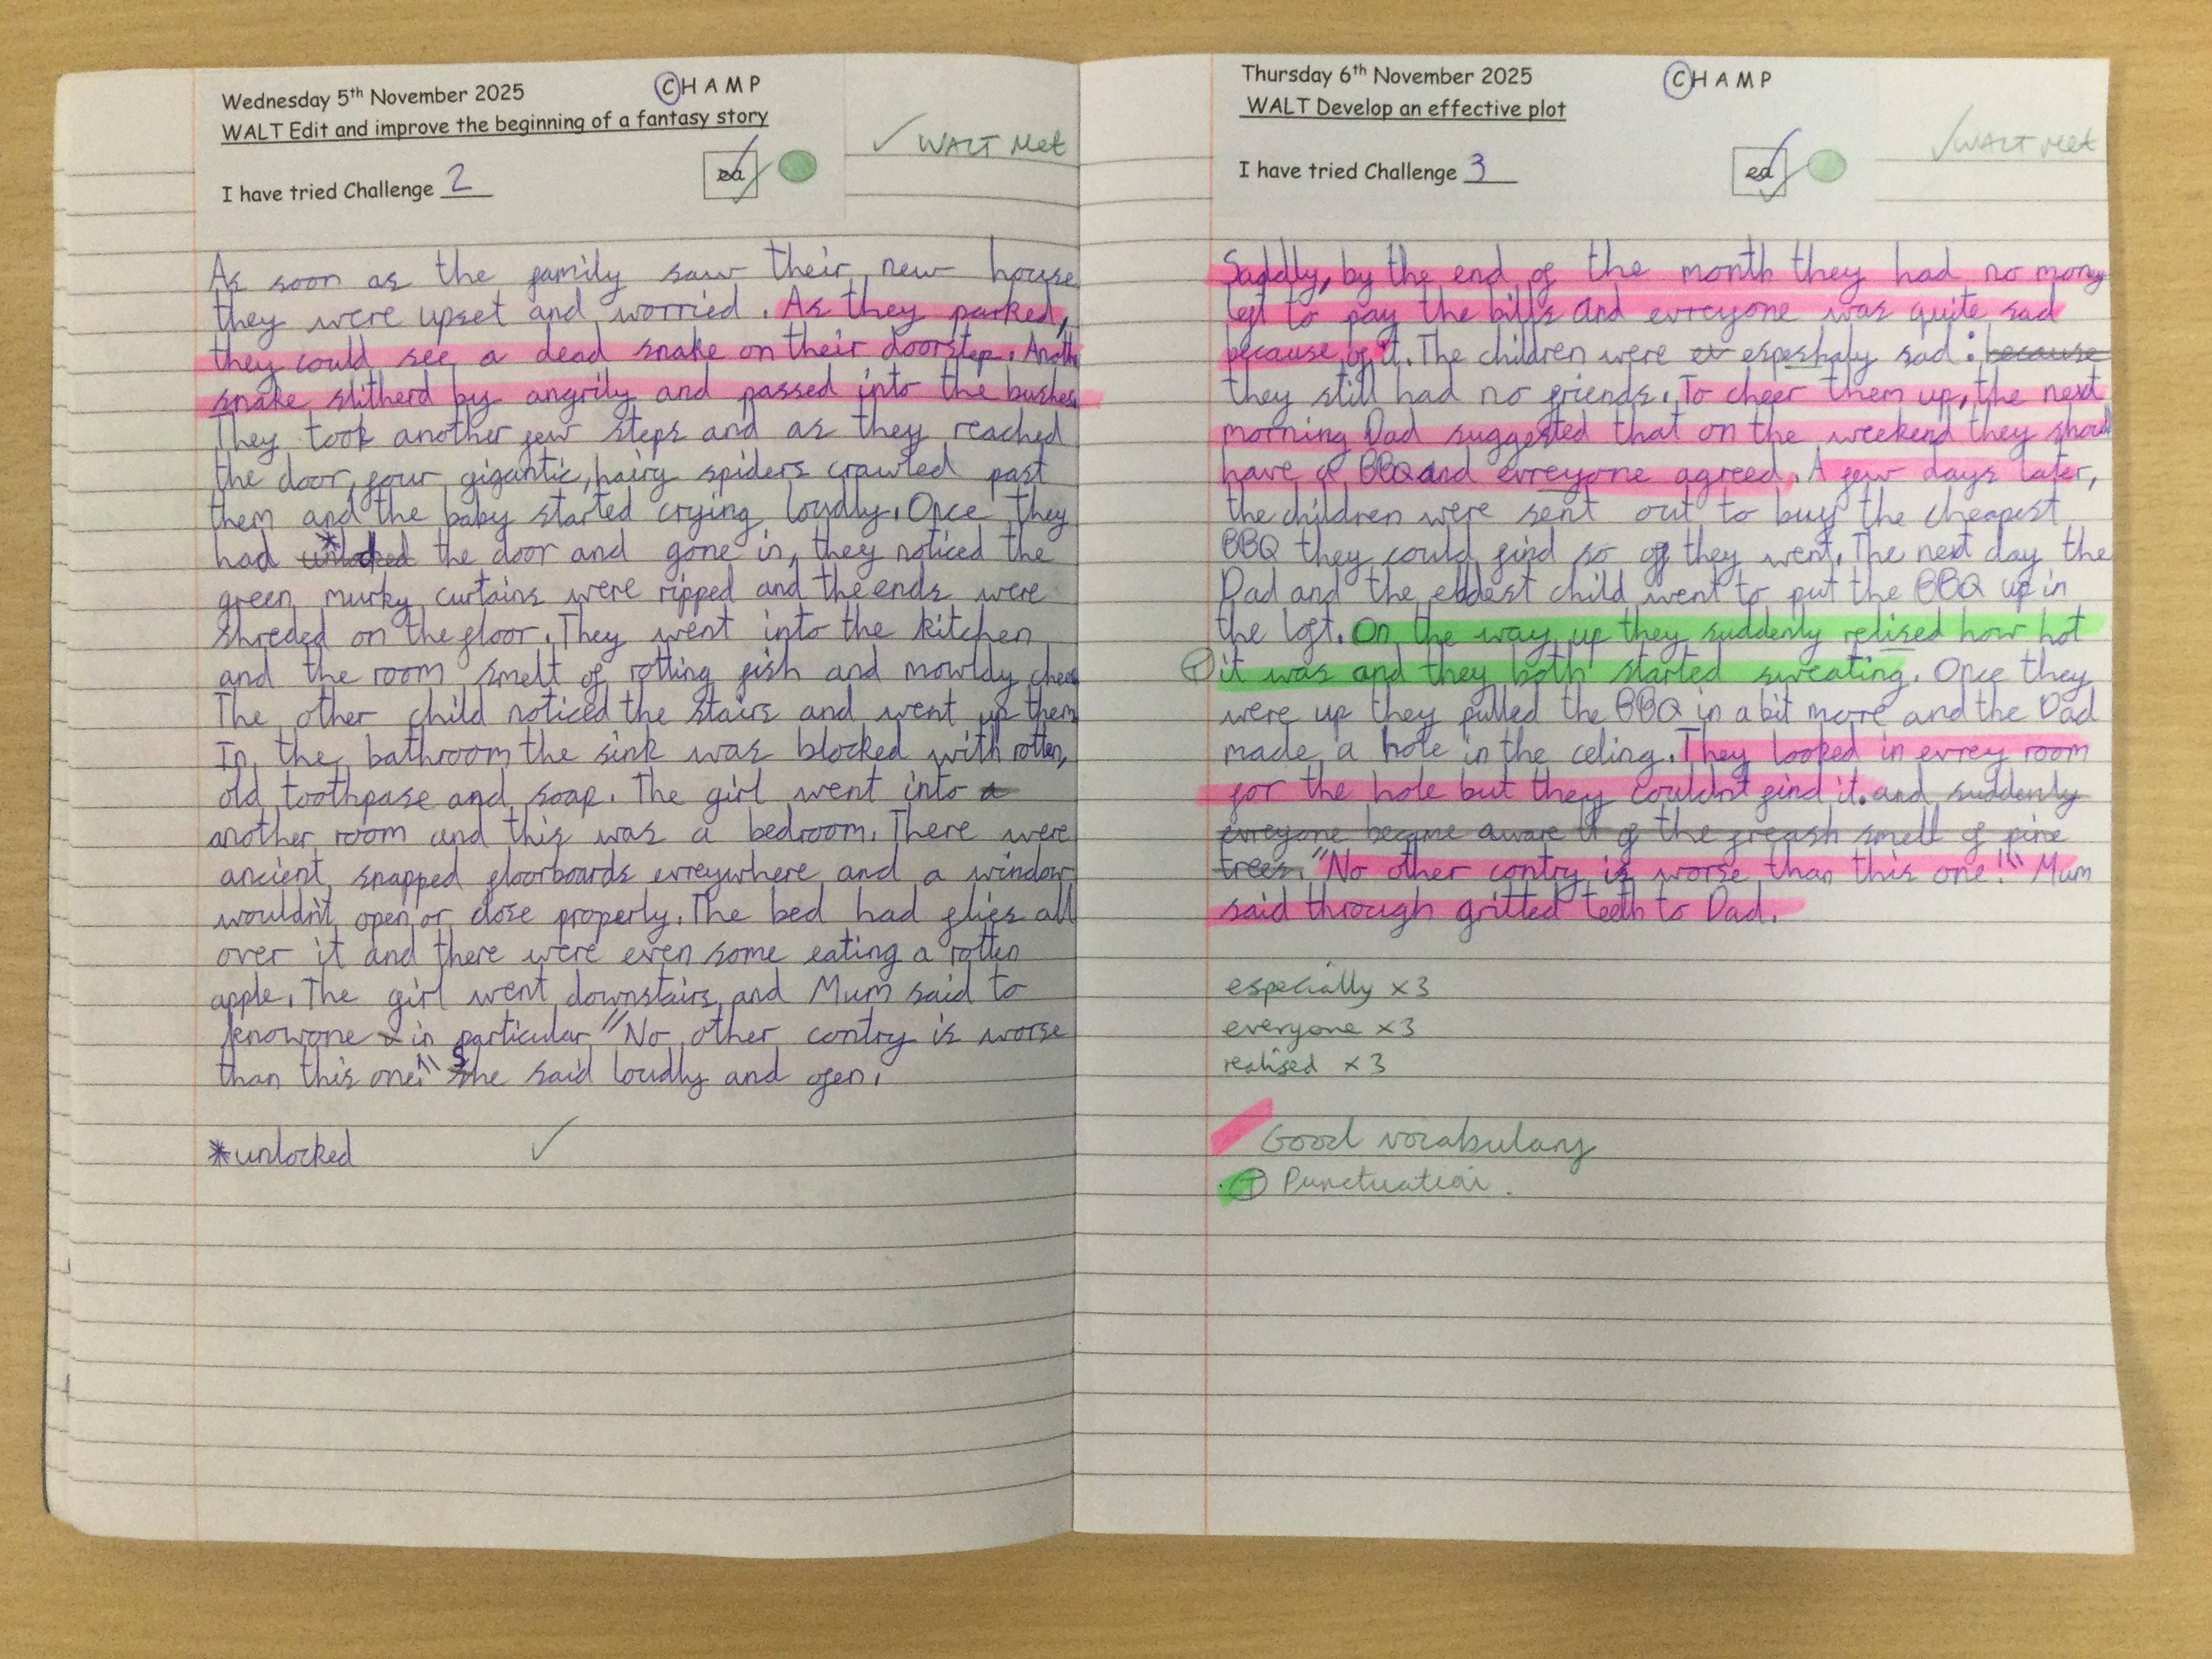 Wednesday 5th November 2025
CHAMP
WALT Edit and improve the beginning of a fantasy story
WALT Met
I have tried Challenge 2
As soon as the family saw their new house
they were upset and worried. As they parked,
they could see a dead snake on their doorstep. Anoth
snake slitherd by angrily and passed into the bushes
They took another few steps and as they reached
the door, four gigantic, hairy spiders crawled past
them and the baby started crying loudly. Once they
had * the door and gone in, they noticed the
green murky curtains were ripped and the ends were
shreded on the floor. They went into the kitchen
and the room smelt of rotting fish and mowldy chees
The other child noticed the stairs and went up them
In the bathroom the sink was blocked with rotten,
old toothpase and soap. The girl went into a
another room and this was a bedroom. There were
ancient, snapped floorboards evreywhere and a window
wouldn't open or close properly. The bed had flies all
over it and there were even some eating a rotten
apple. The girl went downstairs and Mum said to
knowone in particular "No other contry is worse
than this one!" She said loudly and ofen.
*unlocked
Thursday 6th November 2025
CHAMP
WALT Develop an effective plot
WALT Met
I have tried Challenge 3
Saddly, by the end of the month they had no mony
left to pay the bills and evreyone was quite sad
because of it. The children were espeshaly sad: because
they still had no friends. To cheer them up, the next
morning Dad suggested that on the weekend they shoul
have a BBQ and evreyone agreed. A few days later,
the children were sent out to buy the cheapest
BBQ they could find so off they went. The next day the
Dad and the eldest child went to put the BBQ up in
the loft. On the way up they suddenly relised how hot
it was and they both started sweating. Once they
were up they pulled the BBQ in a bit more and the Dad
made a hole in the celing. They looked in evrey room
for the hole but they couldn't find it. and suddenly
evreyone became aware of the freash smell of pine
trees. "No other contry is worse than this one!" Mum
said through gritted teeth to Dad.
especially x3
everyone x3
realised x3
Good vocabulary
T Punctuation.